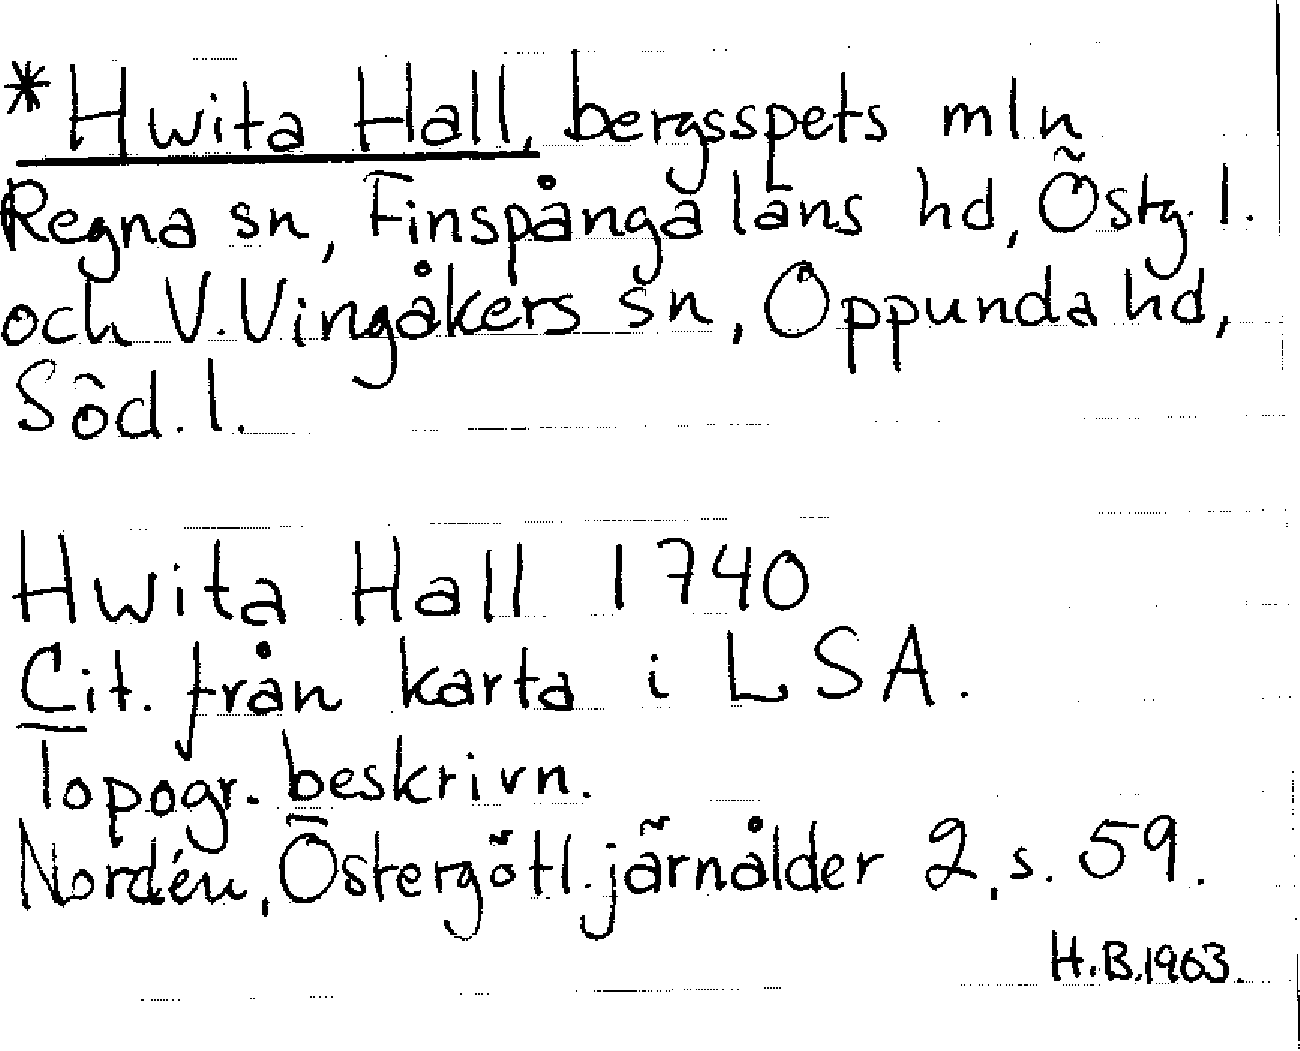 *Hwita Hall, bergsspets mln
Regna sn, Finspånga läns hd, Östg. l.
och V. Vingåkers sn, Oppunda hd,
Söd. l.
Hwita Hall 1740
Cit. från karta i LSA.
Topogr. beskrivn.
Nordén, Östergötl. järnålder 2, s. 59.
H.B. 1963.